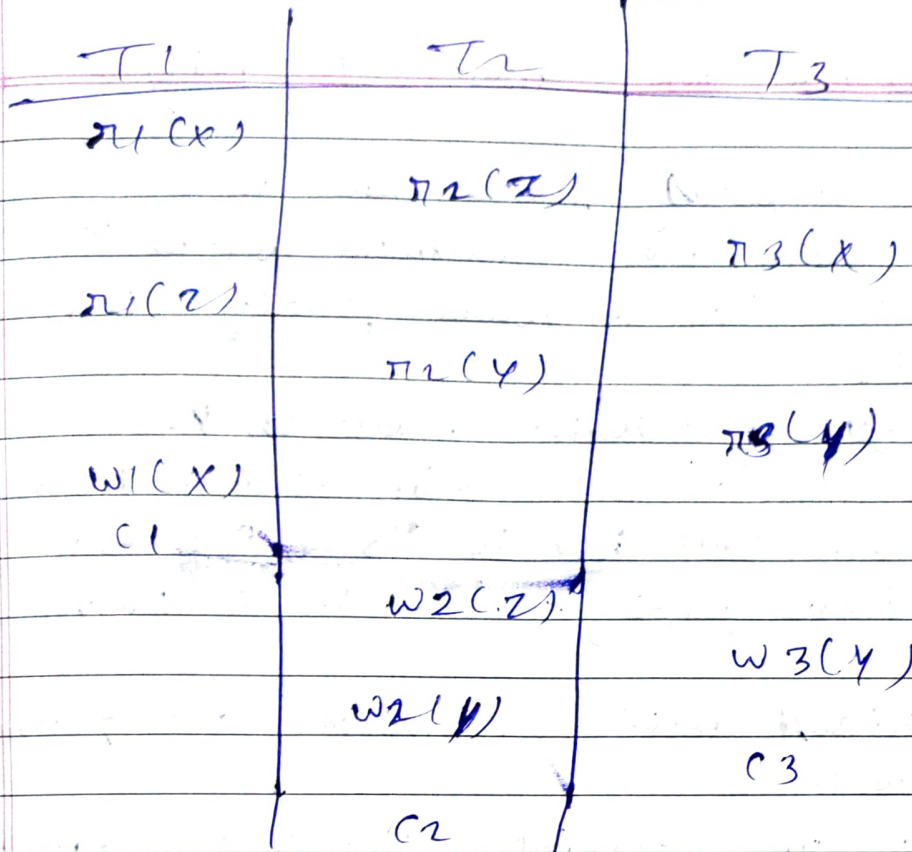 T1 T2 T3
r1(X)
r2(Z)
r3(X)
r1(Z)
r2(Y)
r3(Y)
W1(X)
C1
W2(Z)
W3(Y)
W2(Y)
C3
C2